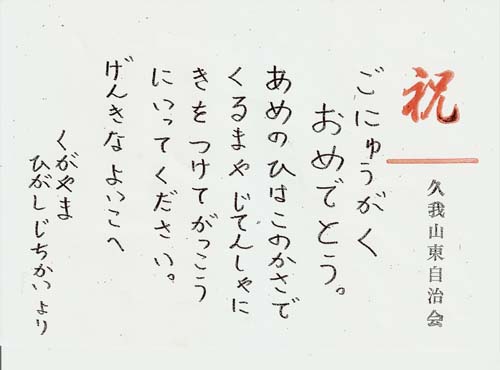 祝
久我山東自治会
ごにゅうがく
おめでとう。
あめのひはこのかさで
くるまやじてんしゃに
きをつけてがっこう
にいってください。
げんきなよいこへ
くがやま
ひがしじちかいより